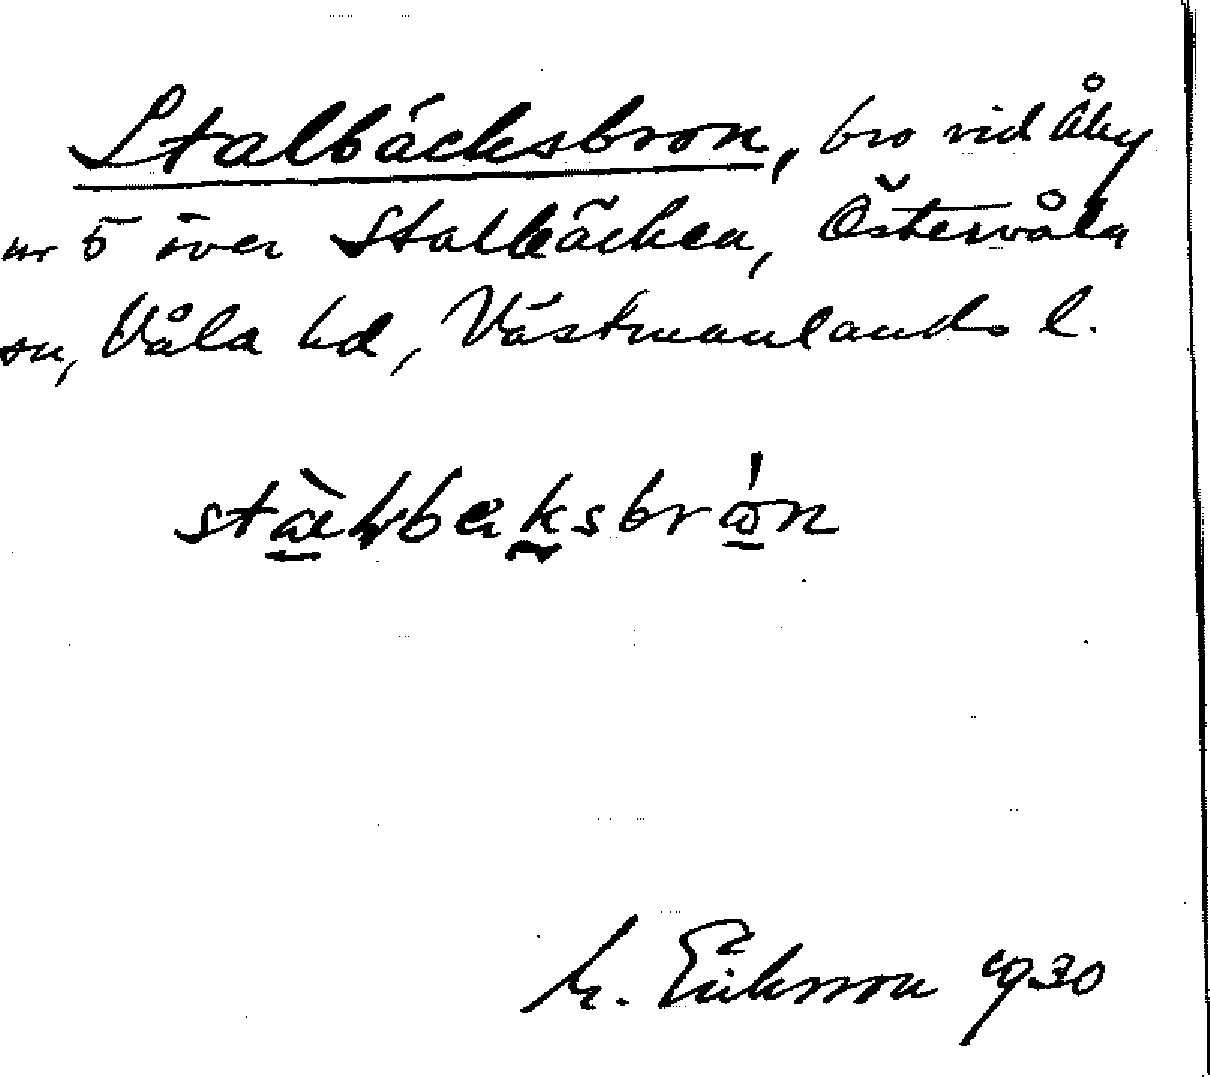 Stalbäcksbron, bro vid Åby
nr 5 över Stalbäcken, Östervåla
sn, Våla hd, Västmanlands l.
M. Eriksson 1930